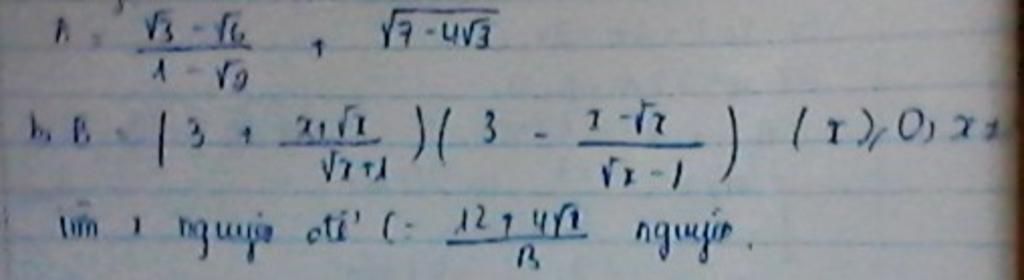 A = \frac{\sqrt{3} - \sqrt{6}}{1 - \sqrt{2}} + \sqrt{7 - 4\sqrt{3}}
b, B = ( 3 + \frac{x + \sqrt{x}}{\sqrt{x} + 1} ) ( 3 - \frac{x - \sqrt{x}}{\sqrt{x} - 1} ) ( x ≥ 0, x ≠
tìm x nguyên để C = \frac{12 + 4\sqrt{x}}{B} nguyên.